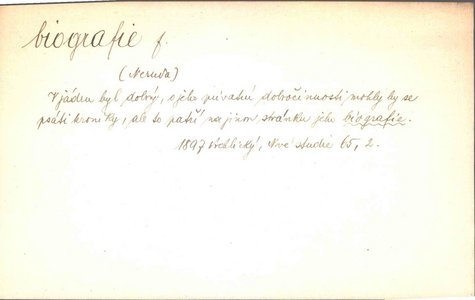 biografie f.
(Neruda)
V jádru byl dobrý, o jeho privatní dobročinnosti mohly by se
psáti kroniky, ale to patří na jinou stránku jeho biografie.
1897 Vrchlický, Nové studie 65, 2.